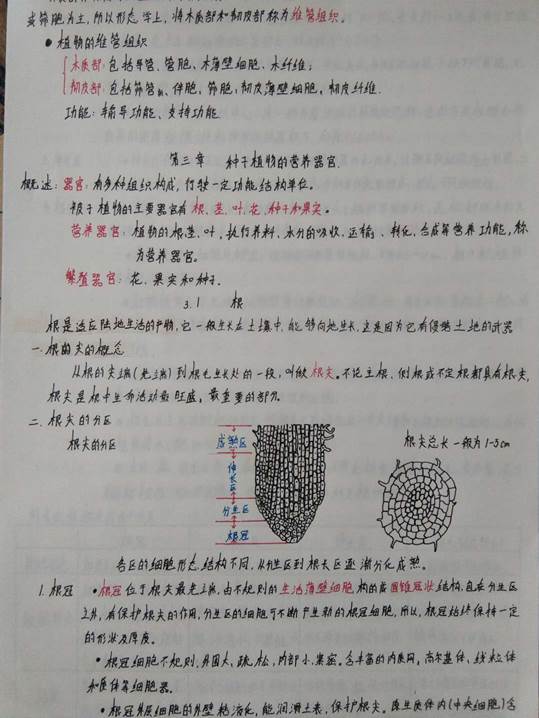 实物胞为主,所以形态学上,将木质部和韧皮部称为维管组织。
• 植物的维管组织
木质部:包括导管、管胞、木薄壁细胞、木纤维;
韧皮部:包括筛管、伴胞、筛胞,韧皮薄壁细胞。韧皮纤维.
功能:输导功能、支持功能
第三章 种子植物的营养器官
概述:器官:有多种组织构成,行使一定功能结构单位。
被子植物的主要器官有根、茎、叶、花、种子和果实。
营养器官:植物的根、茎、叶,执行养料、水分的吸收、运输、转化、合成等营养功能,称
为营养器官。
繁殖器官:花、果实和种子.
3.1 根
根是适应陆地生活的产物,它一般生长在土壤中,能够向地生长,这是因为它有侵略土地的武器
一.根的尖的概念
从根的尖端(先端)到根毛生长处的一段,叫做根尖。不论主根、侧根或不定根都具有根尖,
根尖是根中生命活动最旺盛、最重要的部分.
二.根尖的分区
根尖的分区
根尖总长一般为1-5cm
成熟区
伸长区
分生区
根冠
各区的细胞形态结构不同,从分生区到根毛区逐渐分化成熟。
1.根冠 •根冠位于根尖最先端,由不规则的生活薄壁细胞构成的圆锥冠状结构,包在分生区
之外,有保护根尖的作用,分生区的细胞可不断产生新的根冠细胞,所以,根冠始终保持一定
的形状及厚度。
• 根冠细胞不规则,外围大,疏松,内部小,紧密。含丰富的内质网、高尔基体、线粒体
和质体等细胞器。
• 根冠外层细胞的外壁粘液化,能润滑土表,保护根尖。原生质体内(中央细胞)含